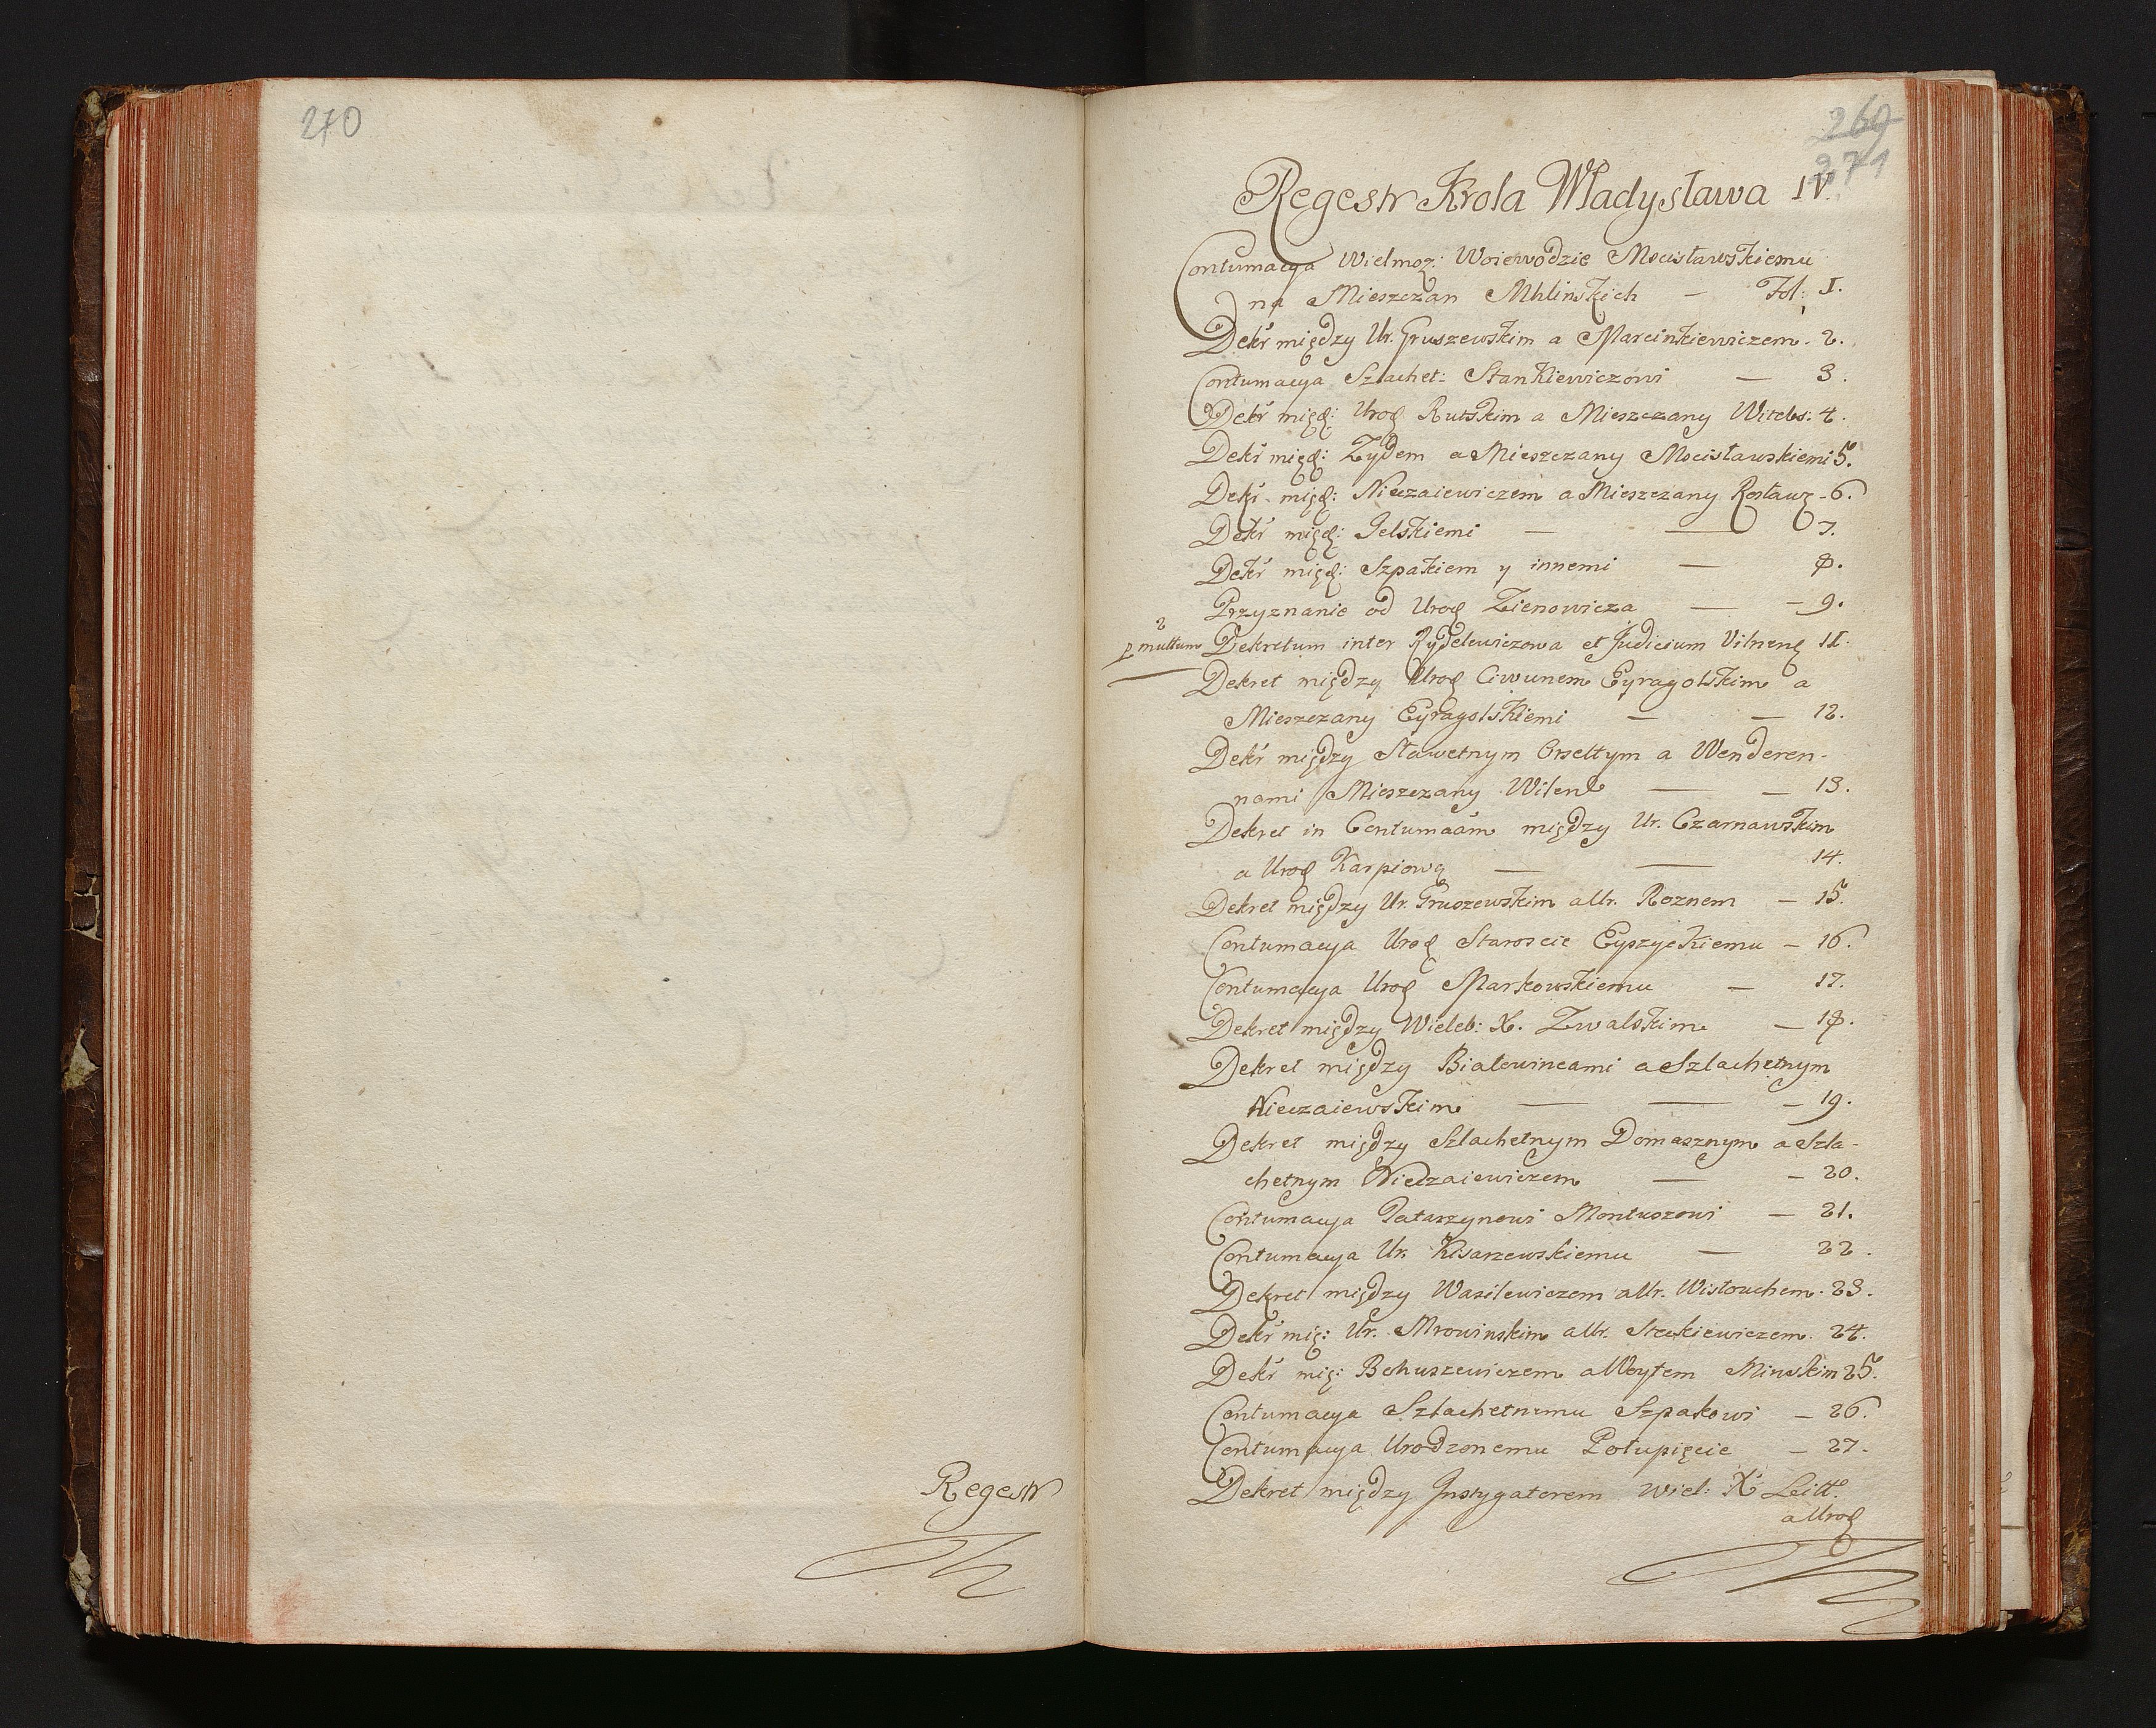 270
Regestr
269
271
Regestr Krola Władysława IV.
Contumacya Wielmoz: Woiewodzie Mscisławskiemu
na Mieszczan Mhlinskich — Fol: 1.
Dekr między Ur. Gruszewskim a Marcinkiewiczem. 2.
Contumacya Szlachet: Stankiewiczowi — 3.
Dekr międ: Urod Rutskim a Mieszczany Witebs: 4.
Dekr międ: Zydem a Mieszczany Mscisławskiemi 5.
Dekr międ: Nieczaiewiczem a Mieszczany Rosławs - 6.
Dekr międ: Jelskiemi — — 7.
Dekr międ: Szpakiem y innemi — 8.
Przyznanie od Urod Zienowicza — - 9.
2
p multum Dekretum inter Rydelewiczowa et Judicium Vilnens 11.
Dekret między Urod Ciwunem Eyragolskim a
Mieszczany Eyragolskiemi — — 12.
Dekr między Sławetnym Orseltym a Wenderen-
nami Mieszczany Wilens — — 13.
Dekret in Contumaam między Ur. Czarnawskim
a Urod Karpiową — — 14.
Dekret między Ur. Gruszewskim a Ur. Roznem — 15.
Contumacya Urod Staroscie Eyszyckiemu — 16.
Contumacya Urod Markowskiemu — 17.
Dekret między Wieleb: X. Zwalskim — 18.
Dekret między Białewincami a Szlachetnym
Nieczaiewskim — — - 19.
Dekret między Szlachetnym Domasznym a Szla-
chetnym Nieczaiewiczem — - 20.
Contumacya Patarzynowi Montuszowi — 21.
Contumacya Ur. Kisarzewskiemu — 22.
Dekret między Wasilewiczem a Ur. Wisłouchem. 23.
Dekr mię: Ur. Mrowinskim a Ur. Steckiewiczem. 24.
Dekr mię: Bohuszewiczem a Woytem Minskim 25.
Contumacya Szlachetnemu Szpakowi — 26.
Contumacya Urodzonemu Połupięcie — 27.
Dekret między Instygatorem Wiel: X Litt.
a Urod